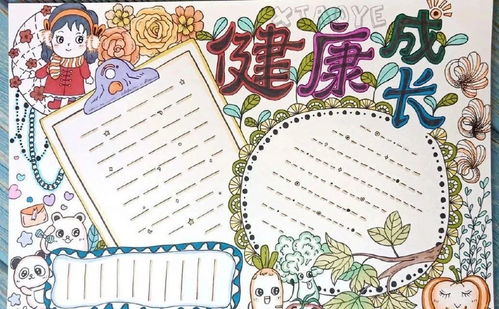 XIAOYE
健康成长